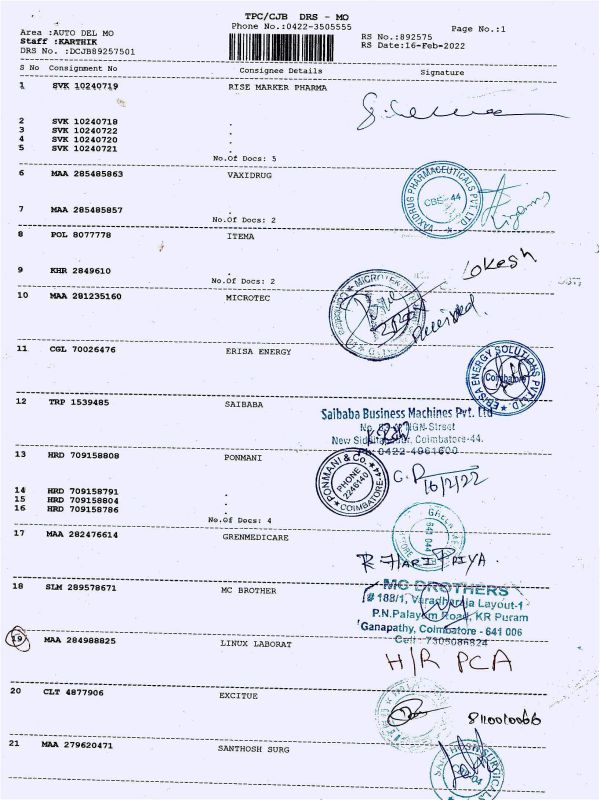 TPC/CJB DRS - MO
Phone No.:0422-3505555
Page No.:1
Area :AUTO DEL MO
Staff :KARTHIK
DRS No. :DCJB89257501
RS No.:892575
RS Date:16-Feb-2022
S No Consignment No Consignee Details Signature
1 SVK 10240719 RISE MARKER PHARMA
2 SVK 10240718 .
3 SVK 10240722 .
4 SVK 10240720 .
5 SVK 10240721 .
No.Of Docs: 5
6 MAA 285485863 VAXIDRUG
VAXIDRUG PHARMACEUTICALS PVT LTD
CBE-44
7 MAA 285485857 .
No.Of Docs: 2
8 POL 8077778 ITEMA
Lokesh
9 KHR 2849610 .
No.Of Docs: 2
10 MAA 281235160 MICROTEC
Received.
11 CGL 70026476 ERISA ENERGY
ERISA ENERGY SOLUTIONS PVT LTD
Coimbatore
12 TRP 1539485 SAIBABA
Saibaba Business Machines Pvt. Ltd
Street
Coimbatore-44.
Ph: 0422-4961600
13 HRD 709158808 PONMANI
PONMANI & Co.
PHONE
2246140
COIMBATORE-44
16/2/22
14 HRD 709158791 .
15 HRD 709158804 .
16 HRD 709158786 .
No.Of Docs: 4
17 MAA 282476614 GRENMEDICARE
641 044
R HARI PRIYA.
18 SLM 289578671 MC BROTHER
MC BROTHERS
# 188/1, Varadharaja Layout-1
P.N.Palayam Road, KR Puram
Ganapathy, Coimbatore - 641 006
Cell : 7305086824
19 MAA 284988825 LINUX LABORAT
H/R PCA
20 CLT 4877906 EXCITUE
8110010066
21 MAA 279620471 SANTHOSH SURG